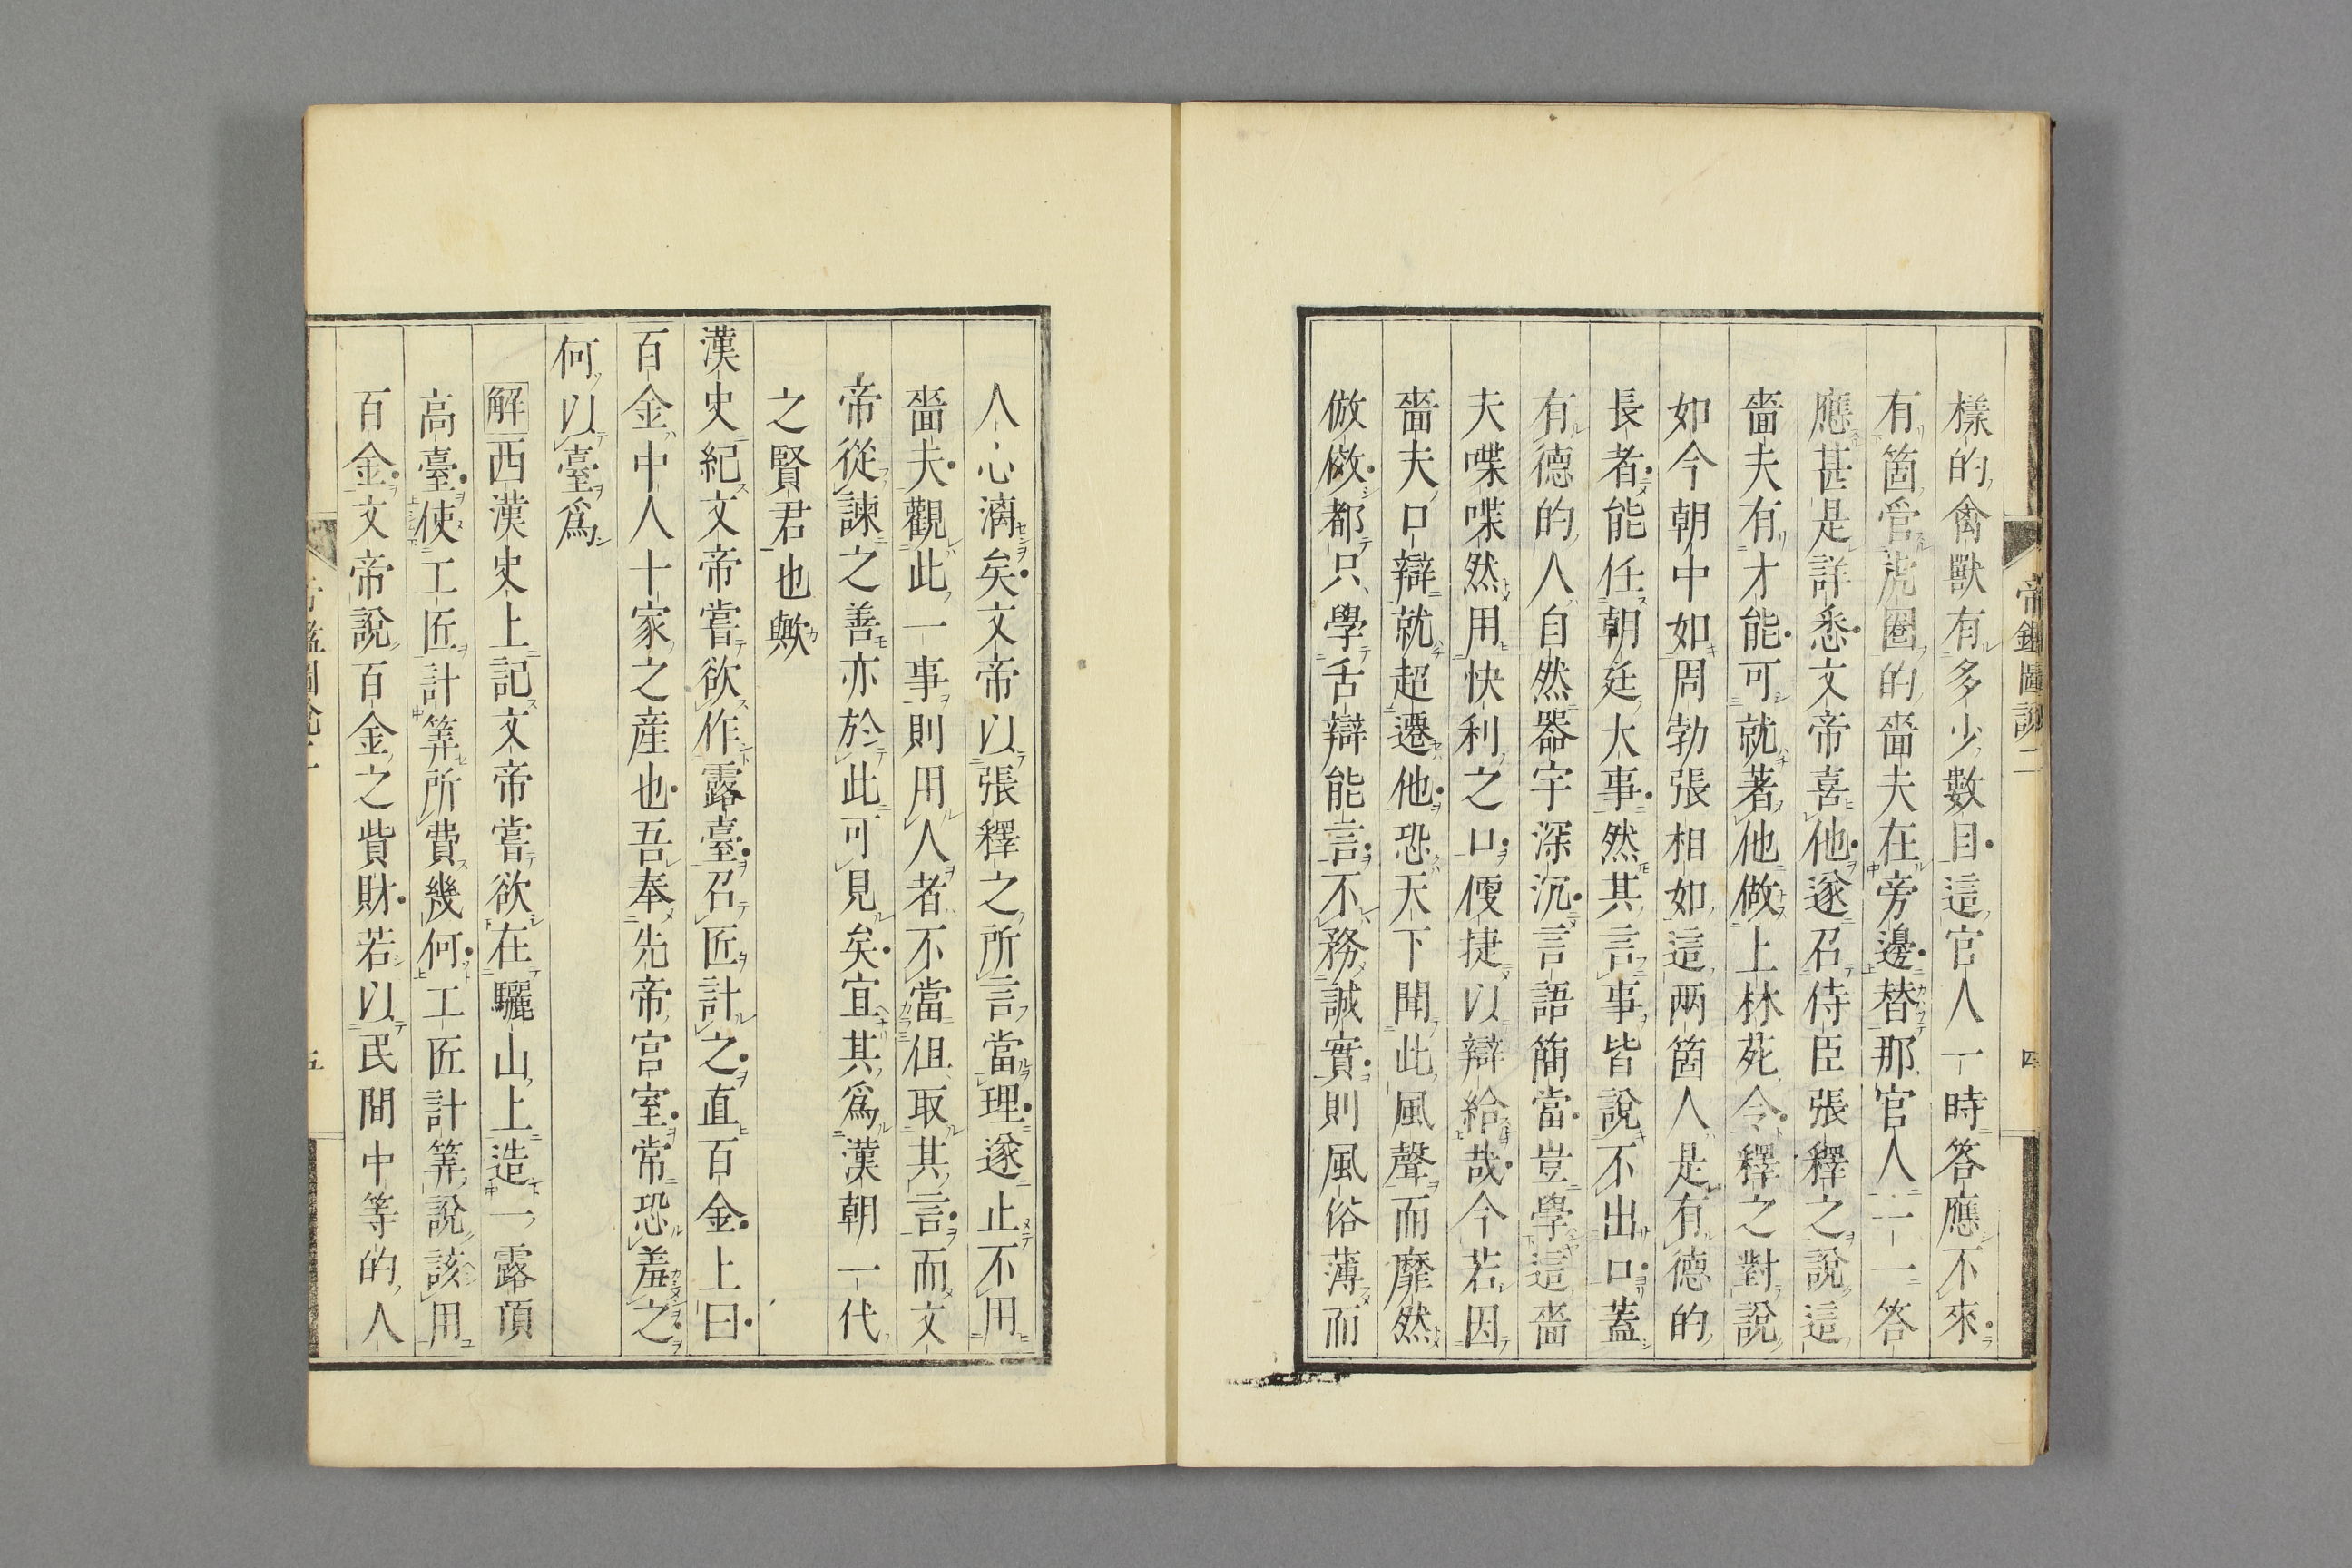 帝鑑圖說二
四
樣的禽獸有多少數目這官人一時答應不來
有箇管虎圈的嗇夫在旁邊替那官人一一答
應甚是詳悉文帝喜他遂召侍臣張釋之說這
嗇夫有才能可就著他做上林苑令釋之對說
如今朝中如周勃張相如這兩箇人是有德的
長者能任朝廷大事然其言事皆說不出口蓋
有德的人自然器宇深沉言語簡當豈學這嗇
夫喋喋然用快利之口便捷以辯給哉今若因
嗇夫口辯就超遷他恐天下聞此風聲而靡然
倣傚都只學舌辯能言不務誠實則風俗薄而
人心漓矣文帝以張釋之所言當理遂止不用
嗇夫觀此一事則用人者不當但取其言而文
帝從諫之善亦於此可見矣宜其爲漢朝一代
之賢君也歟
漢史紀文帝嘗欲作露臺召匠計之直百金上曰
百金中人十家之産也吾奉先帝宮室常恐羞之
何以臺爲
解西漢史上記文帝嘗欲在驪山上造一露頂
高臺使工匠計筭所費幾何工匠計筭說該用
百金文帝說百金之貲財若以民間中等的人
五